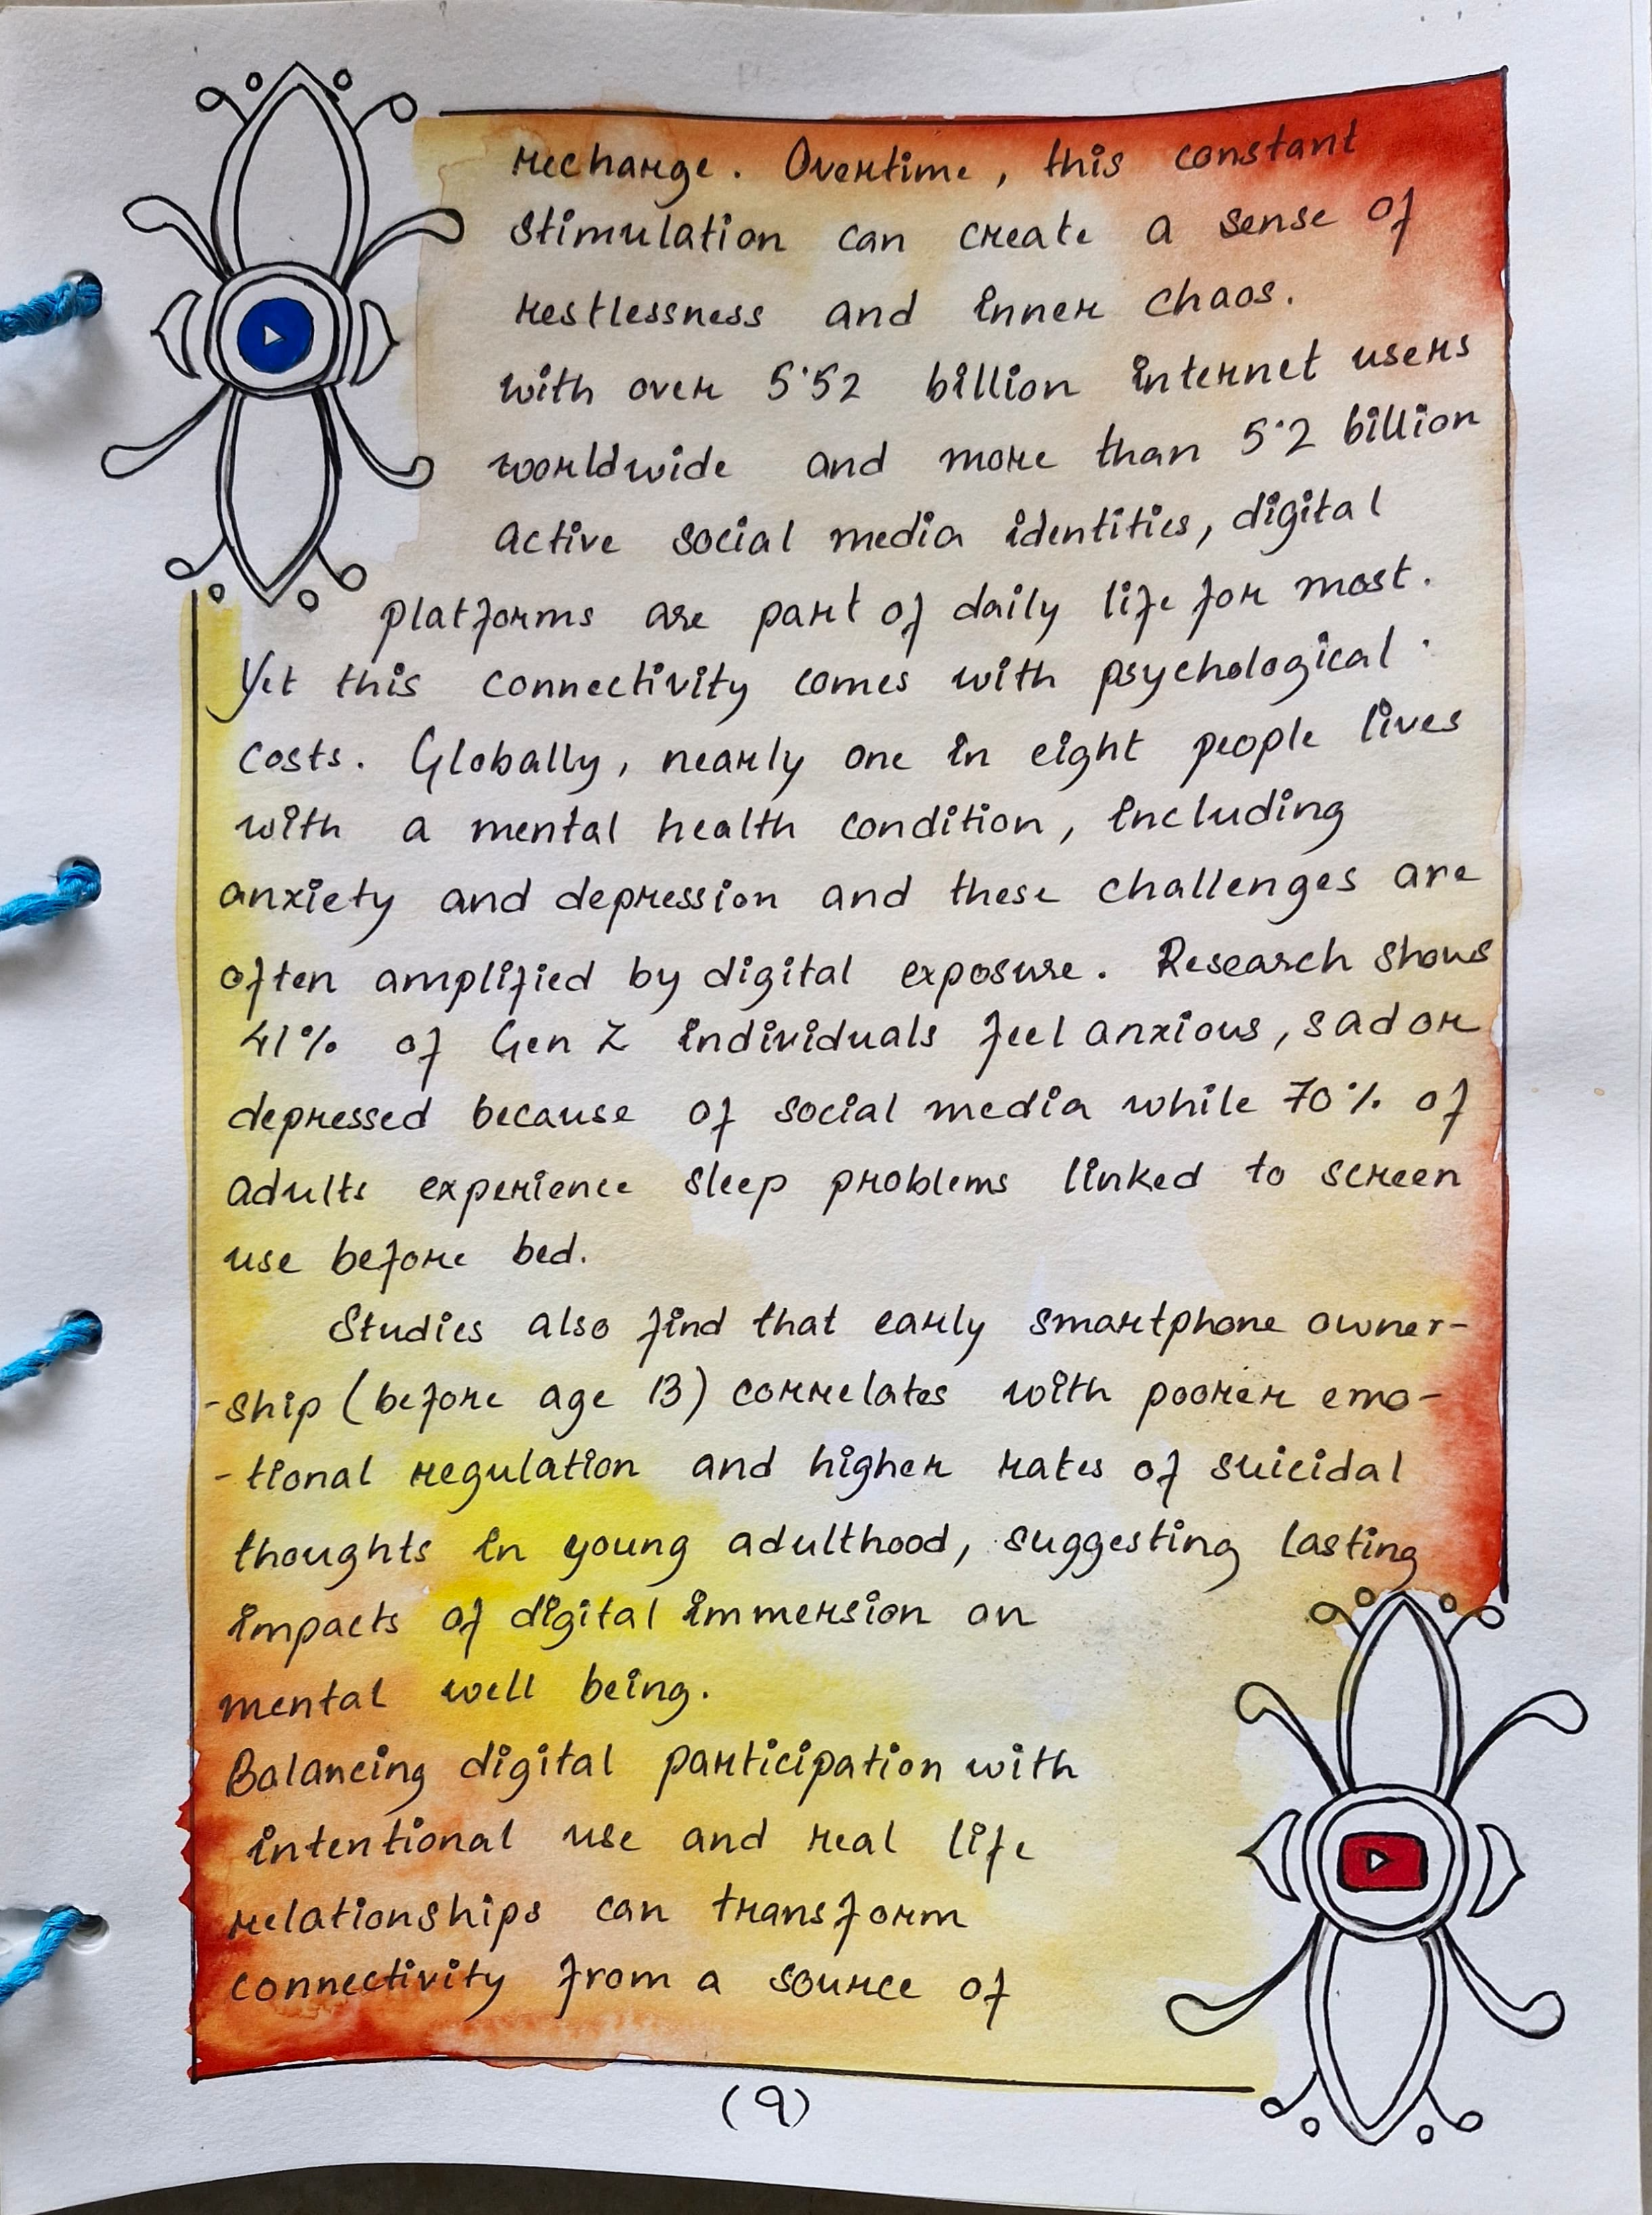 recharge. Overtime, this constant
stimulation can create a sense of
restlessness and inner chaos.
with over 5·52 billion internet users
worldwide and more than 5·2 billion
active social media identities, digital
platforms are part of daily life for most.
Yet this connectivity comes with psychological
costs. Globally, nearly one in eight people lives
with a mental health condition, including
anxiety and depression and these challenges are
often amplified by digital exposure. Research shows
41% of Gen Z individuals feel anxious, sad or
depressed because of social media while 70% of
adults experience sleep problems linked to screen
use before bed.
Studies also find that early smartphone owner-
-ship (before age 13) correlates with poorer emo-
-tional regulation and higher rates of suicidal
thoughts in young adulthood, suggesting lasting
impacts of digital immersion on
mental well being.
Balancing digital participation with
intentional use and real life
relationships can transform
connectivity from a source of
(9)